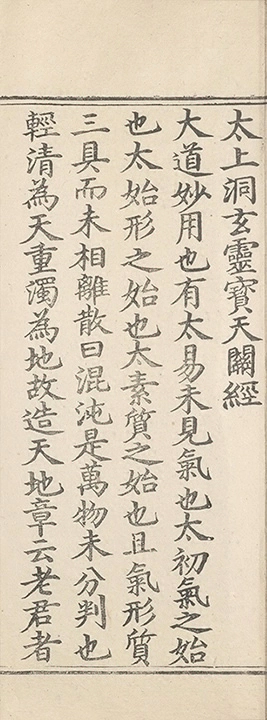 太上洞玄靈寶天關經
大道妙用也有太易未見氣也太初氣之始
也太始形之始也太素質之始也且氣形質
三具而未相離散曰混沌是萬物未分判也
輕清為天重濁為地故造天地章云老君者